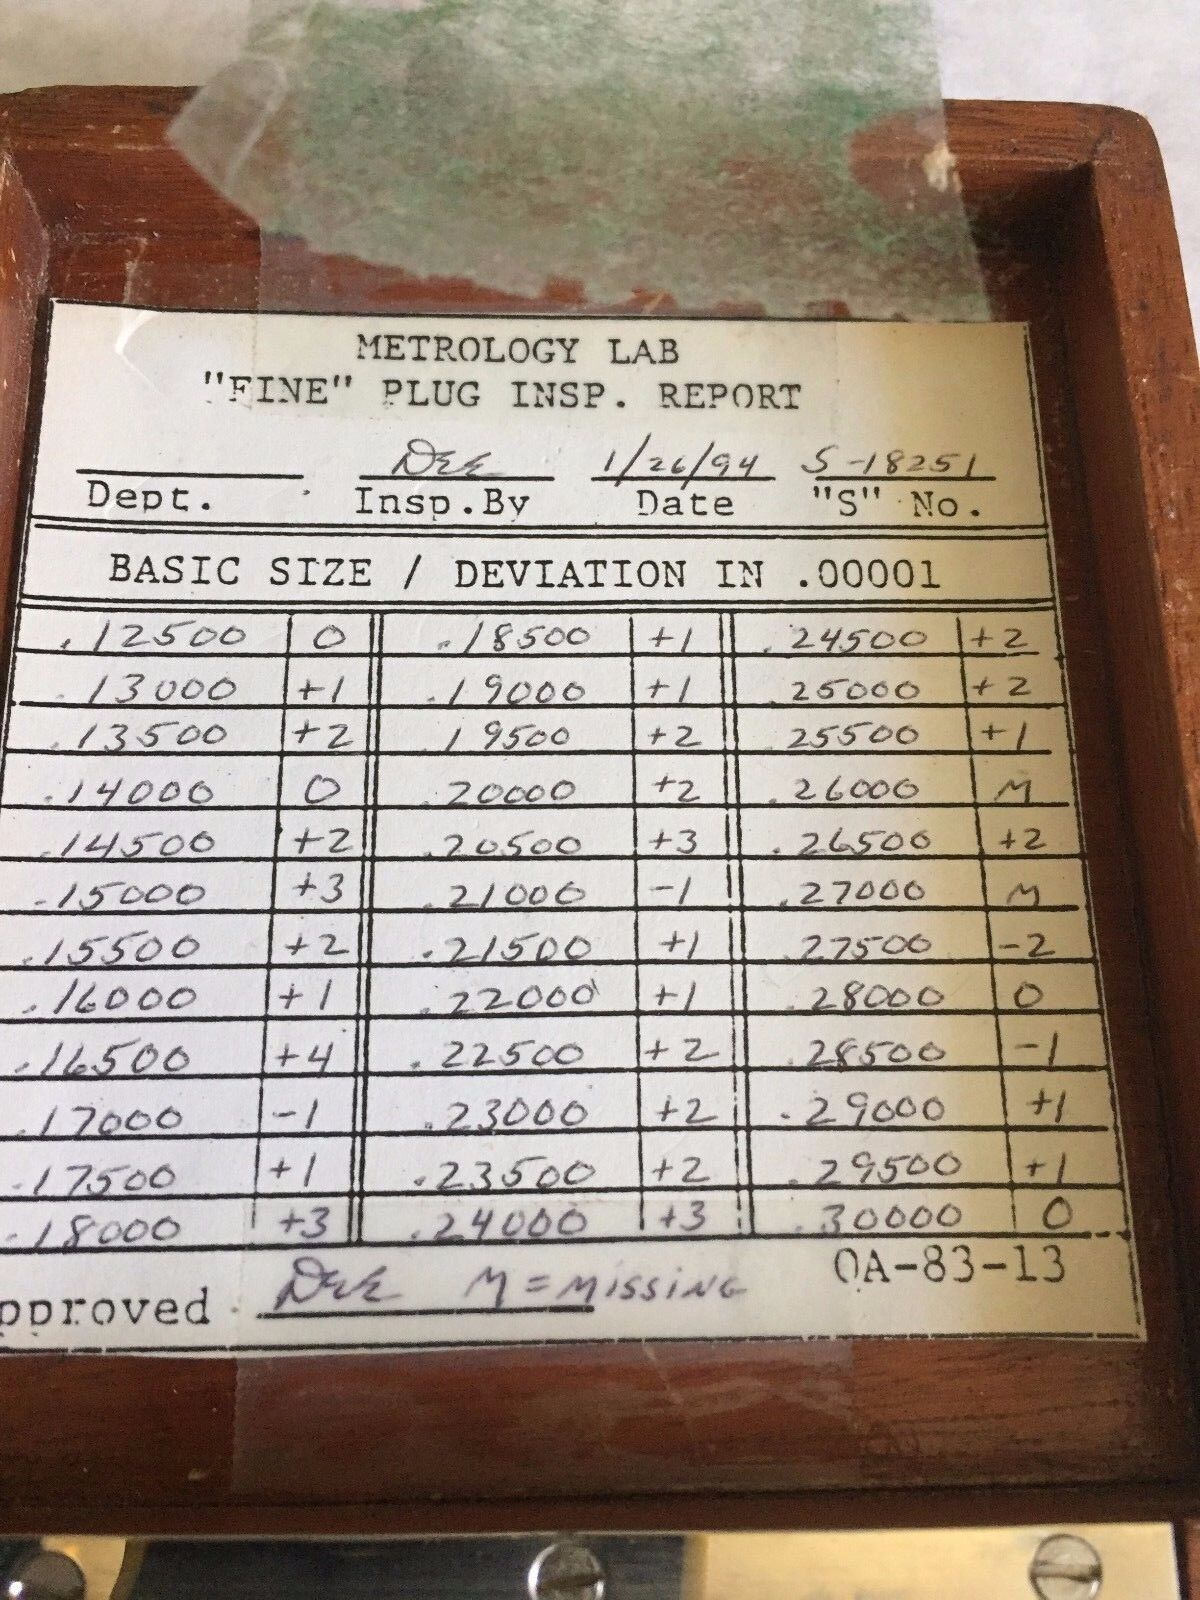 METROLOGY LAB
"FINE" PLUG INSP. REPORT
DEE 1/26/94 S-18251
Dept. Insp.By Date "S" No.
BASIC SIZE / DEVIATION IN .00001
.12500 0 .18500 +1 .24500 +2
.13000 +1 .19000 +1 .25000 +2
.13500 +2 .19500 +2 .25500 +1
.14000 0 .20000 +2 .26000 M
.14500 +2 .20500 +3 .26500 +2
.15000 +3 .21000 -1 .27000 M
.15500 +2 .21500 +1 .27500 -2
.16000 +1 .22000 +1 .28000 0
.16500 +4 .22500 +2 .28500 -1
.17000 -1 .23000 +2 .29000 +1
.17500 +1 .23500 +2 .29500 +1
.18000 +3 .24000 +3 .30000 0
pproved DEE M = MISSING OA-83-13